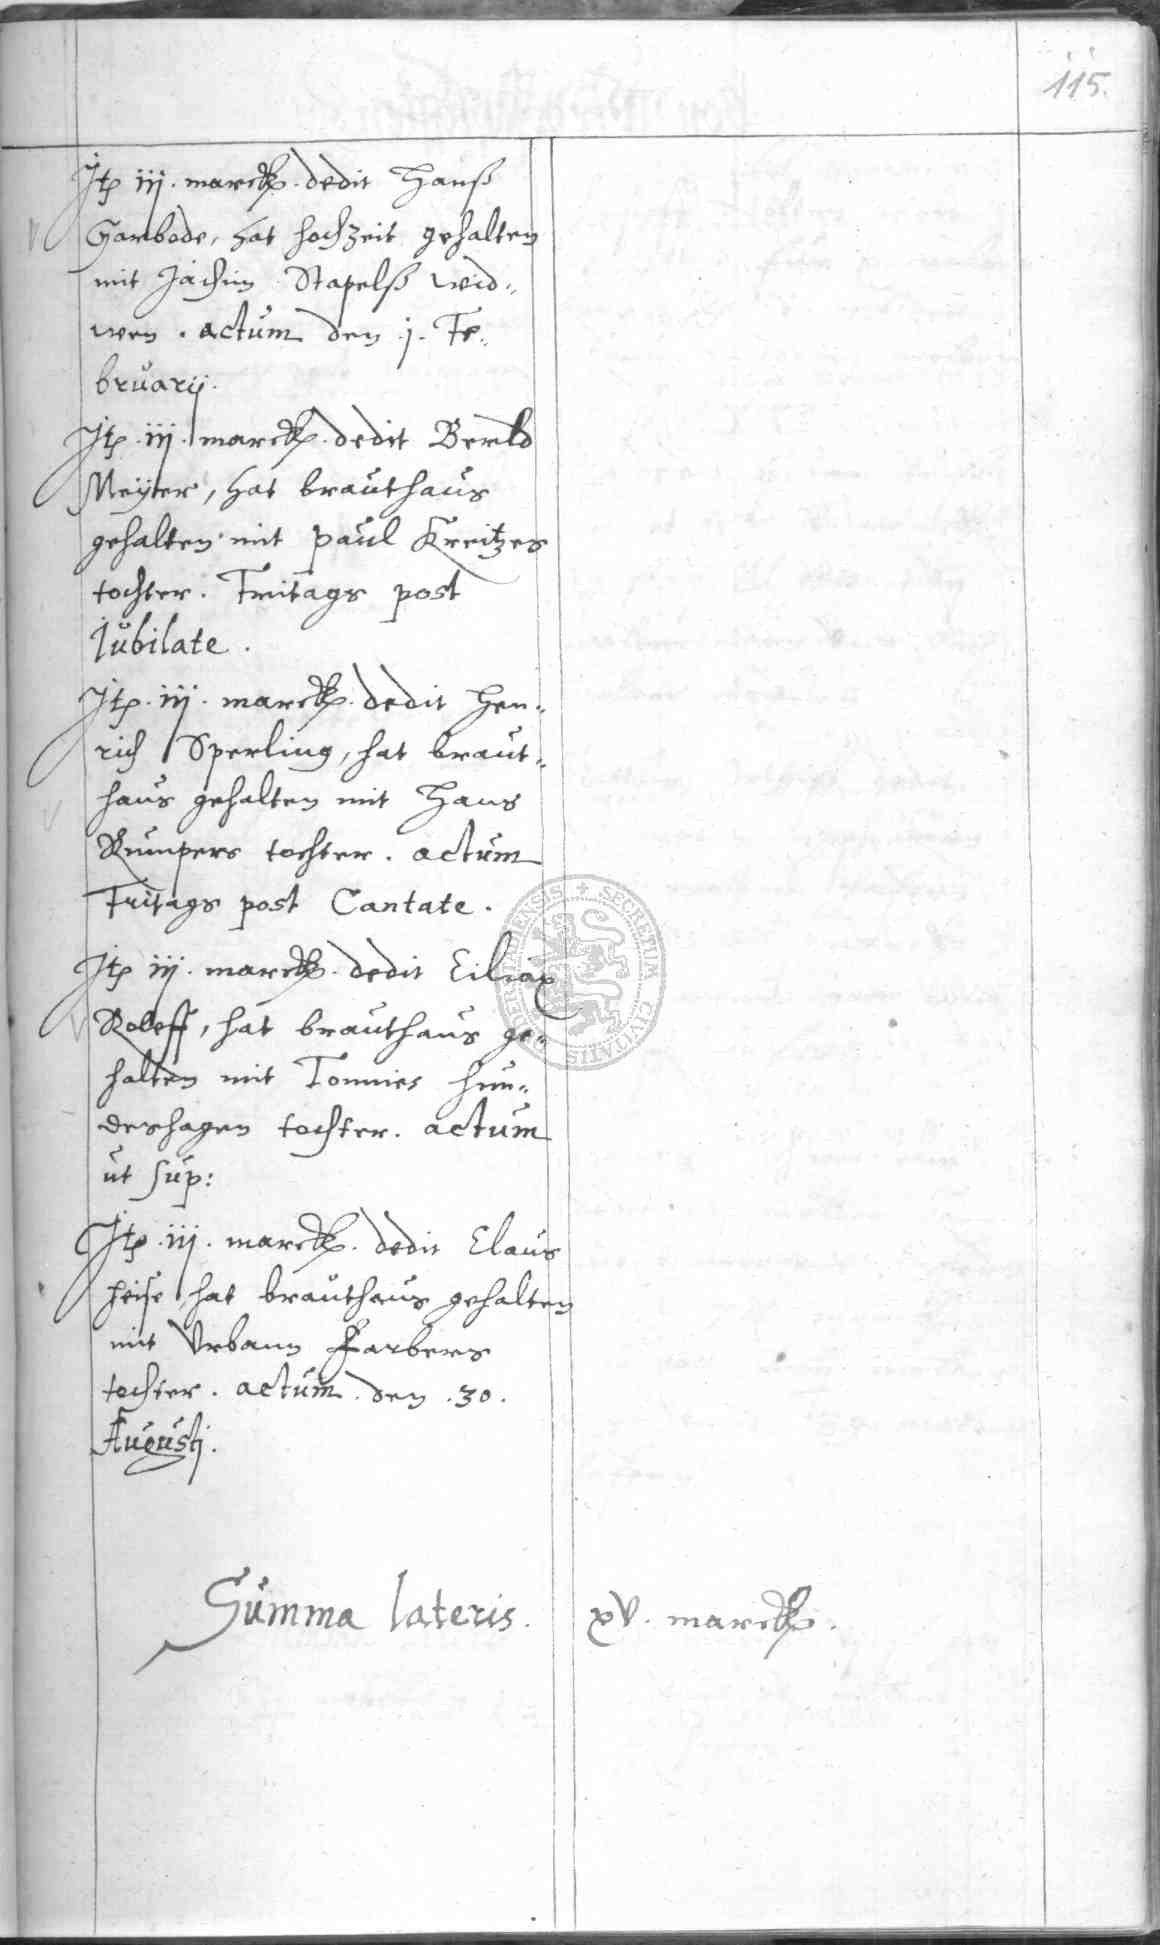 115.
Itp iij. marck. dedit Hanß
Garbode, hat hochzeit gehalten
mit Jachim Stapelß wid„
wen. actum den .j. Fe„
bruarij.
Itp .iij. marck. dedit Berld
Meyier, hat brauthaus
gehalten mit paul Kreitzes
tochter. Fritags post
Jubilate.
Itp. iij. marck. dedit Hen„
rich Sperling, hat braut„
haus gehalten mit Hans
Rumpers tochter. actum
Fritags post Cantate.
Itp iij. marck. dedit Ciliax
Roleff, hat brauthaus ge„
halten mit Tonnies Hun„
deshagen tochter. actum
ut sup:
Itp .iij. marck. dedit Claus
Heise, hat brauthaus gehalten
mit Vrbann Farbers
tochter. actum. den .30.
Augustj.
Summa lateris. xv. marck.
SECRETUM CIVITATIS